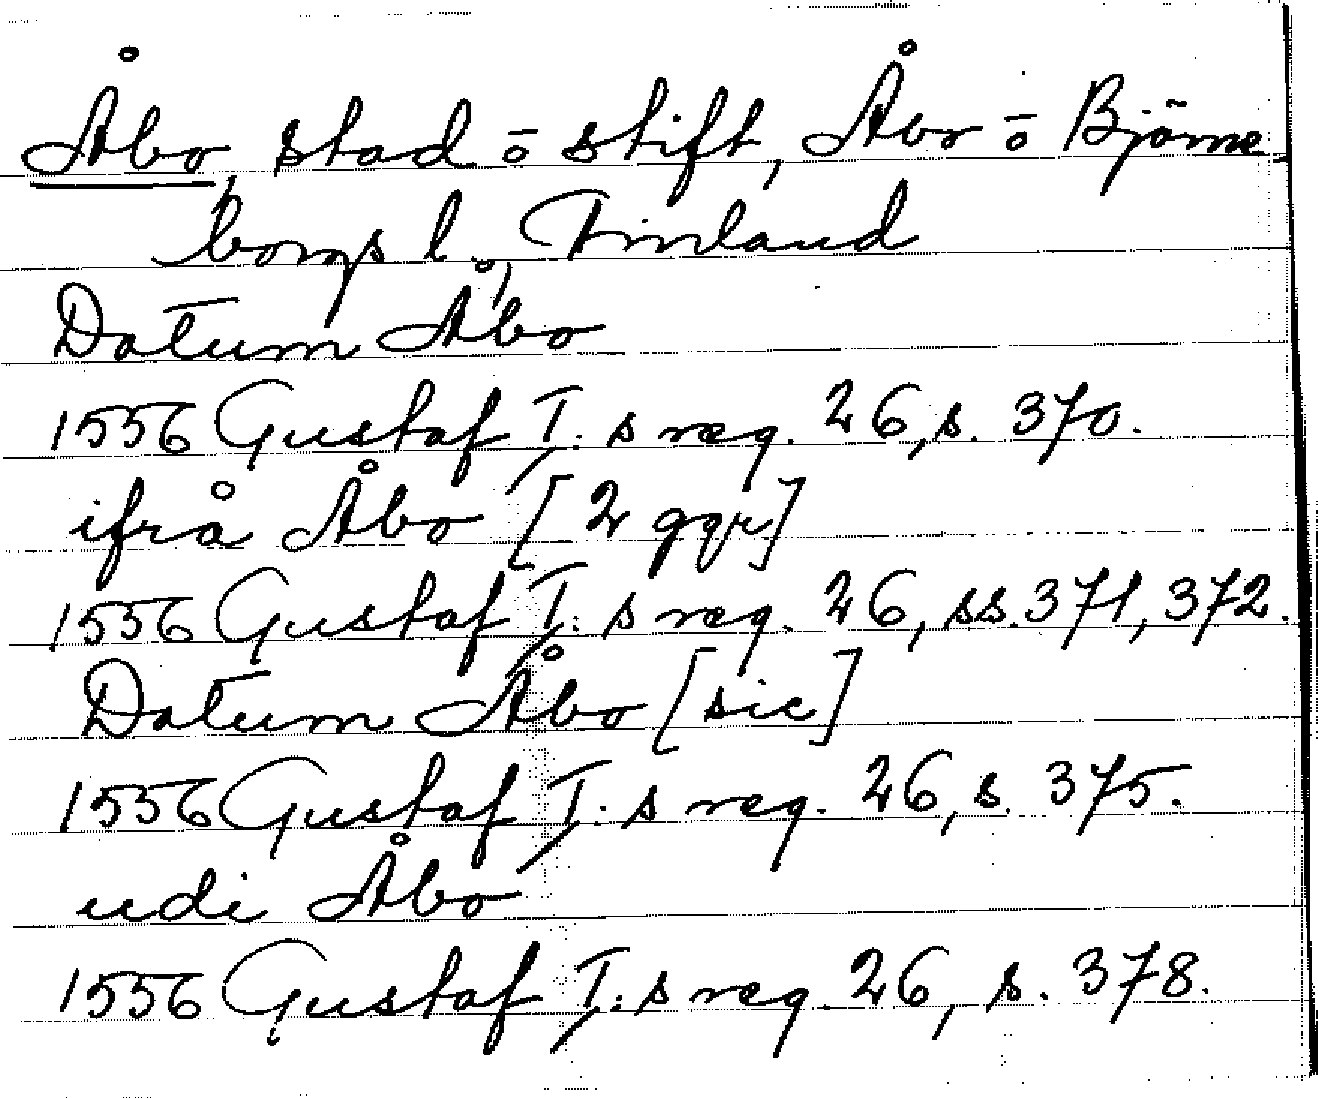 Åbo, stad ō stift, Åbo ō Björne-
borgs l., Finland
Datum Åbo
1556 Gustaf I:s reg. 26, s. 370.
ifrå Åbo [2 ggr]
1556 Gustaf I:s reg. 26, ss. 371, 372.
Datum Åbo [sic]
1556 Gustaf I:s reg. 26, s. 375.
udi Åbo
1556 Gustaf I:s reg. 26, s. 378.